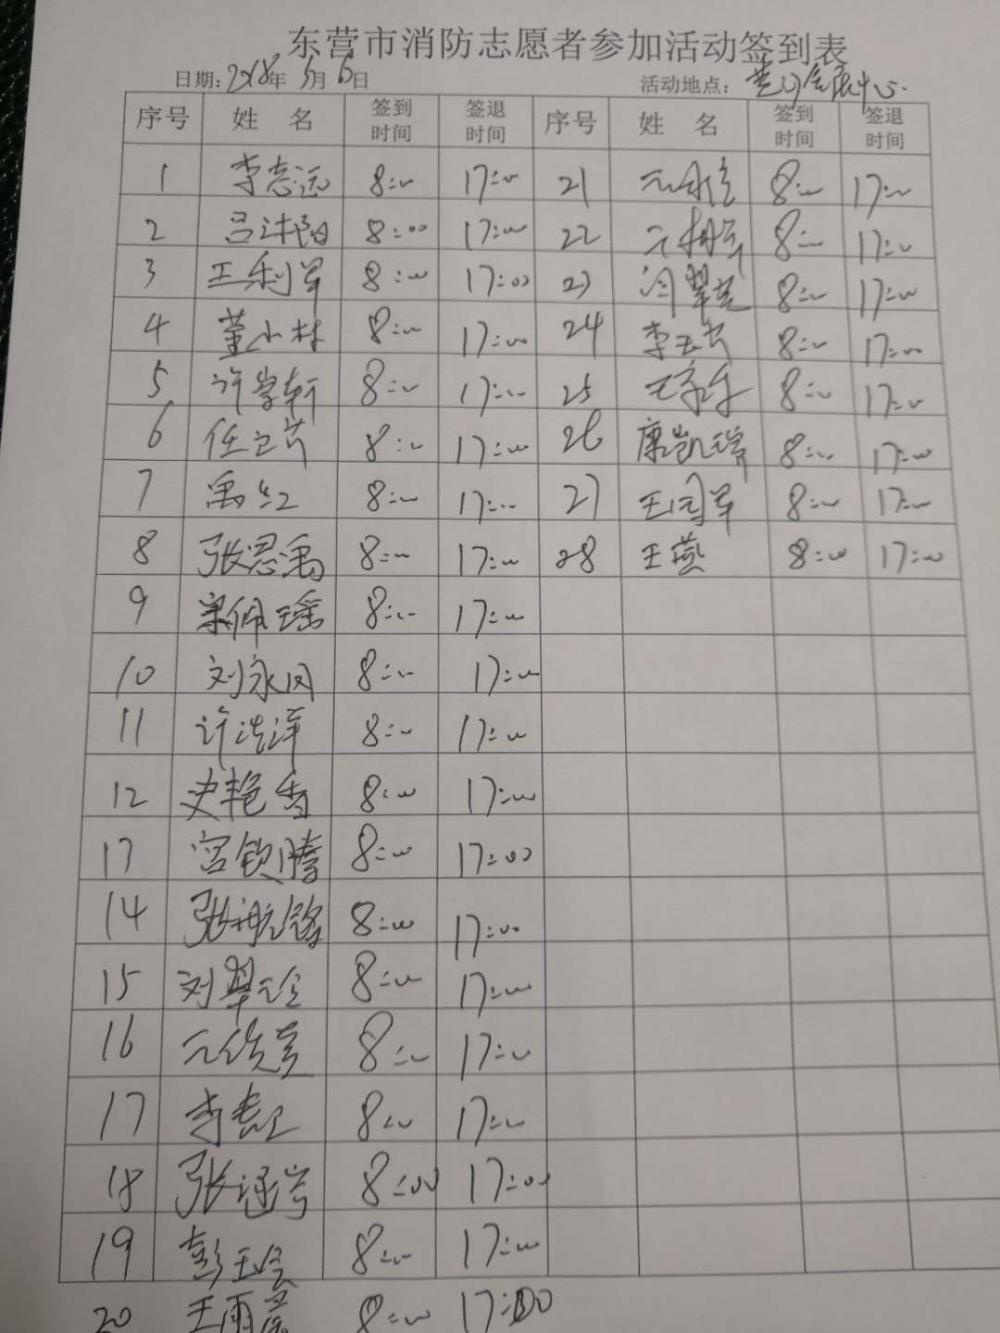 东营市消防志愿者参加活动签到表
日期: 2018年 5月 6日 活动地点:
序号 姓 名 签到时间 签退时间 序号 姓 名 签到时间 签退时间
1 李志远 8:00 17:00 21 8:00 17:00
2 吕沭阳 8:00 17:00 22 8:00 17:00
3 王利军 8:00 17:00 23 闫翠芝 8:00 17:00
4 董小林 8:00 17:00 24 李玉芬 8:00 17:00
5 许学轩 8:00 17:00 25 8:00 17:00
6 任卫芹 8:00 17:00 26 康凯瑞 8:00 17:00
7 禹红 8:00 17:00 27 王同军 8:00 17:00
8 张恩禹 8:00 17:00 28 王燕 8:00 17:00
9 宋佩瑶 8:00 17:00
10 刘永凤 8:00 17:00
11 许浩洋 8:00 17:00
12 史艳香 8:00 17:00
13 宫钦腾 8:00 17:00
14 张航铭 8:00 17:00
15 刘翠玲 8:00 17:00
16 8:00 17:00
17 李志卫 8:00 17:00
18 张涵 8:00 17:00
19 彭玉会 8:00 17:00
20 王雨 8:00 17:00